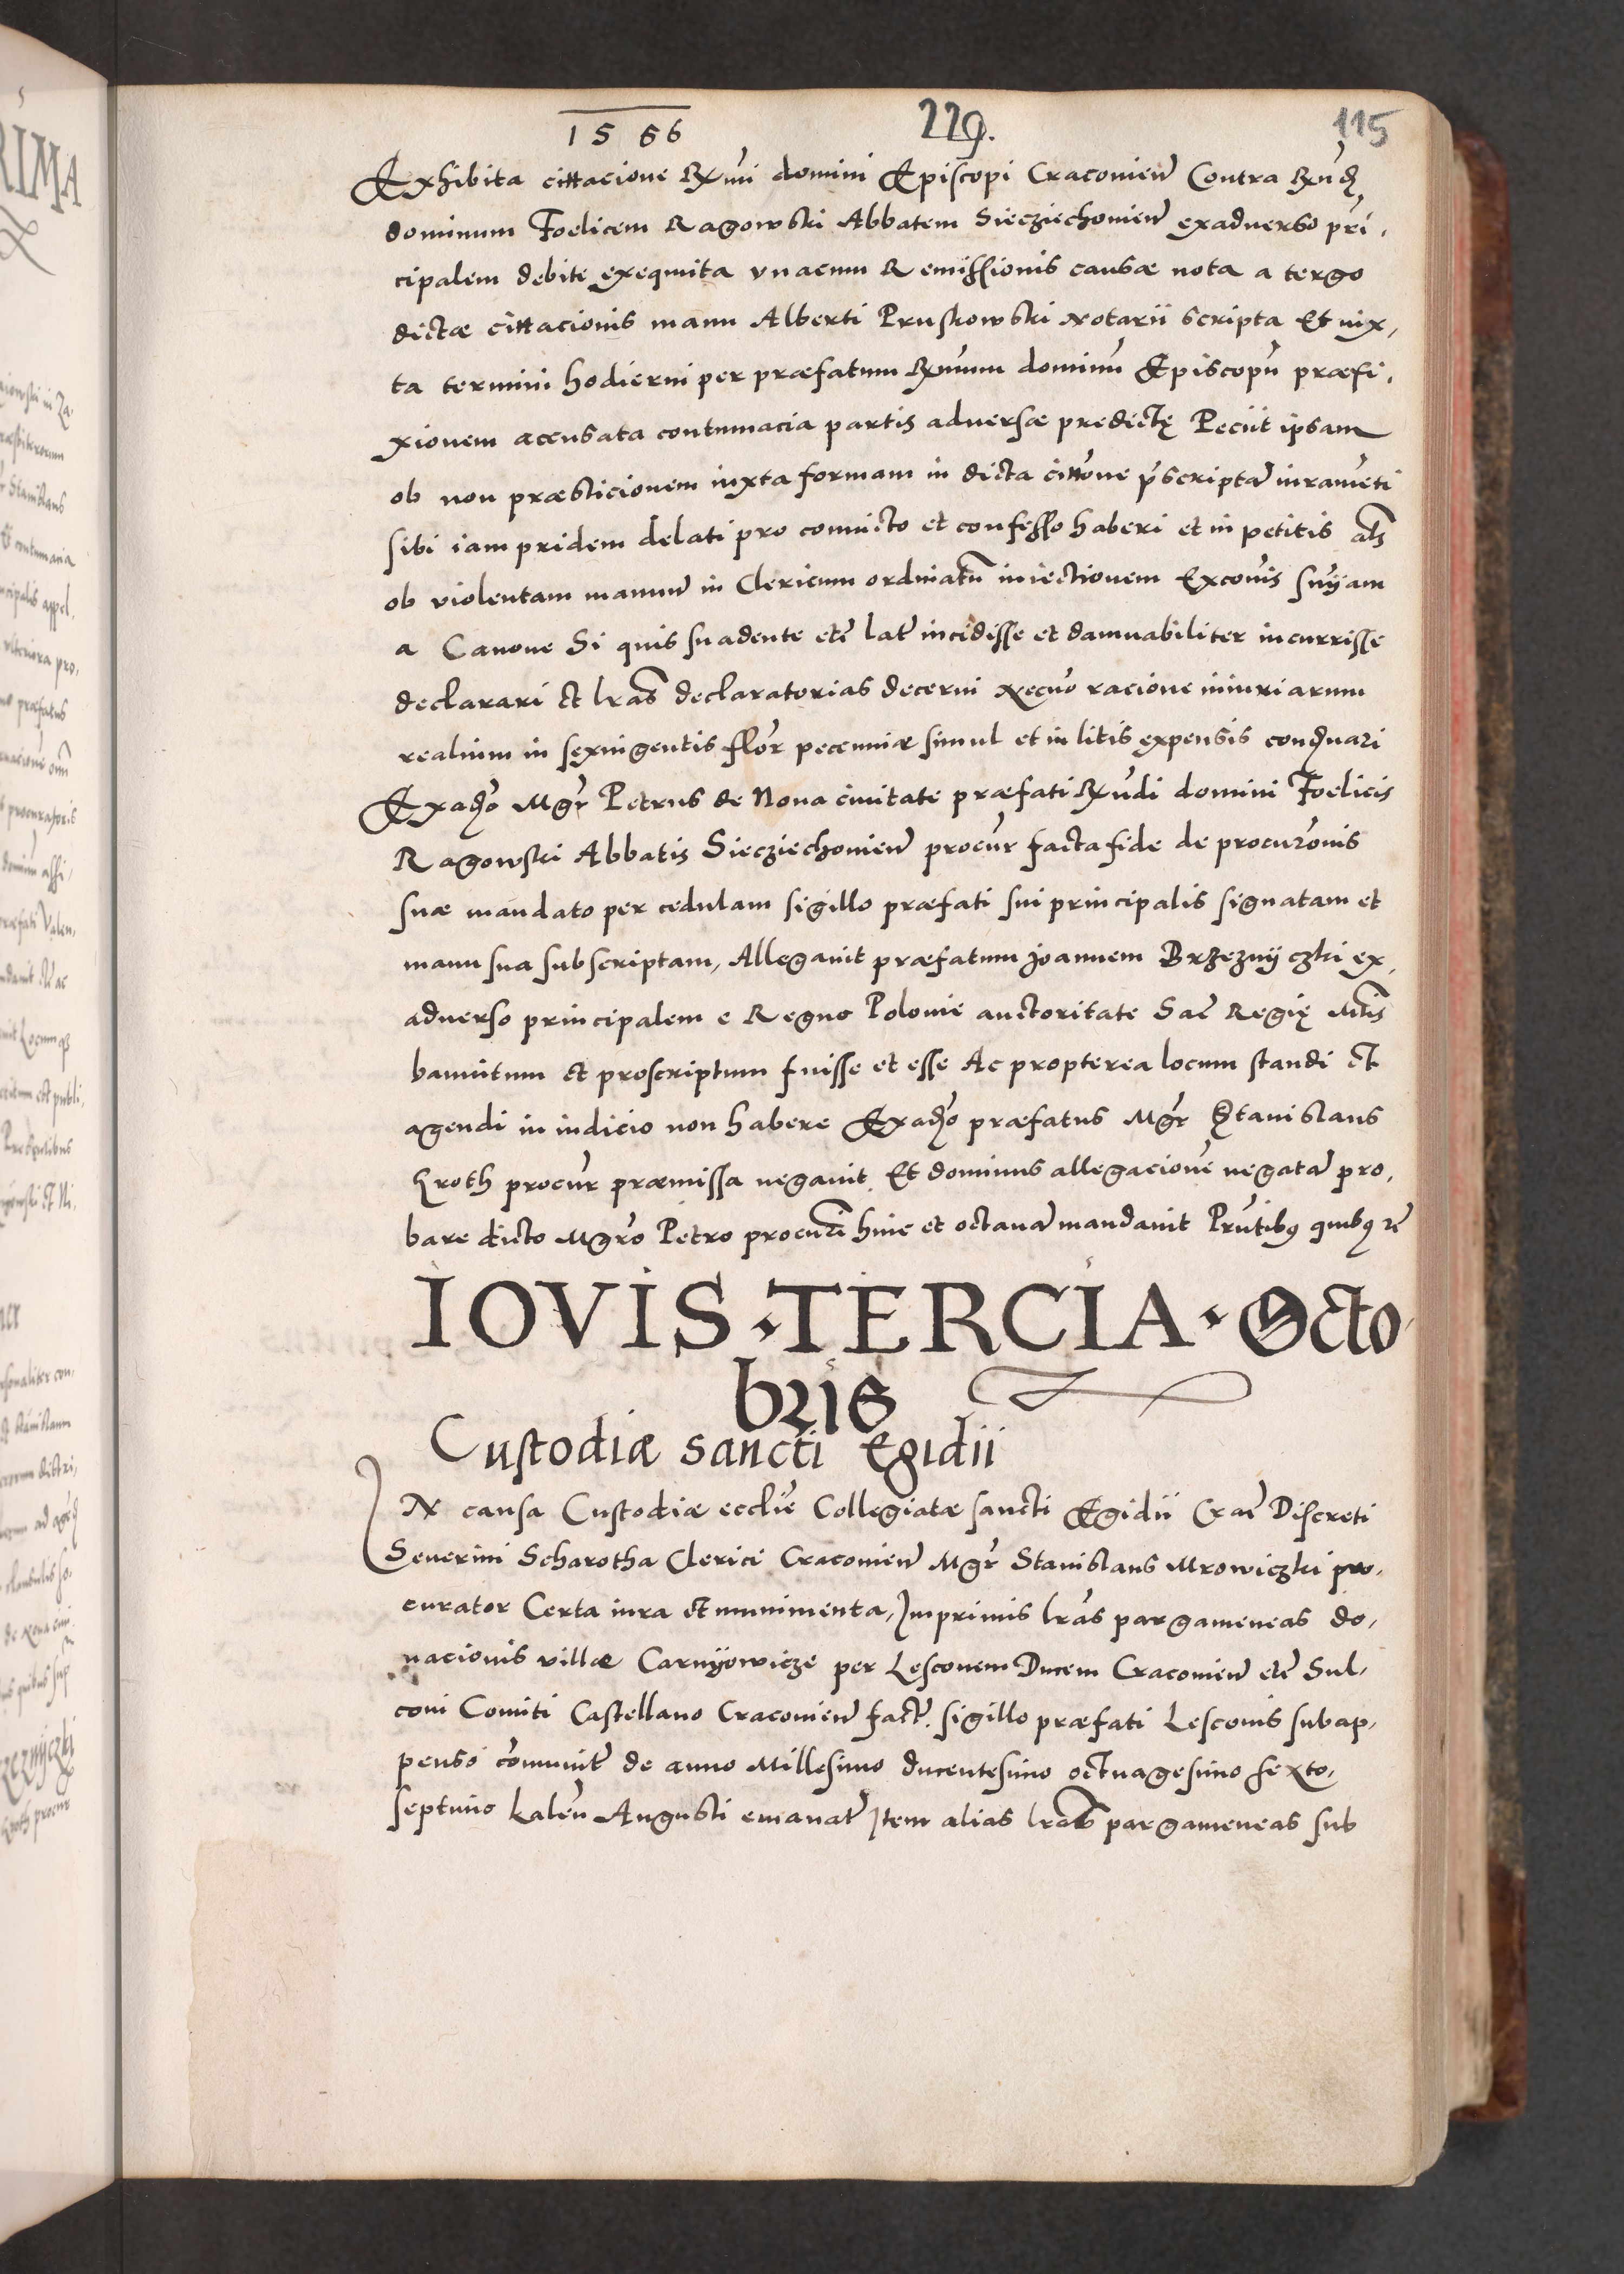 1566
229.
115
Exhibita cittacione Rxmi domini Episcopi Cracovien Contra Rxnd
dominum Foelicem Ragowski Abbatem Siecziechovien exadverso prī,
cipalem debite exequuta unacum Remissionis causæ nota a tergo
dictæ cittacionis manu Alberti Pruskowski Notarii scripta Et iux,
ta termini hodierni per præfatum Rxmum dominū Episcopū præfi,
xionem accusata contumacia partis adversæ predictę Peciit ipsam
ob non præsticionem iuxta formam in dicta cittōne pscriptā iuramēti
sibi iam pridem delati pro convicto et confesso haberi et in petitis als
ob violentam manuū in Clericum ordinatū iniectionem Excoīs snīam
a Canone Si quis suadente etc latē incidisse et damnabiliter incurrisse
declarari et lras declaratorias decerni Necnō racione iniuriarum
realium in sexingentis flor pecuniæ simul et in litis expensis condnari
Exadso Mgr Petrus de Nova civitate præfati Rxndi domini Foelicis
Ragowski Abbatis Siecziechovien procur facta fide de procurōnis
suæ mandato per cedulam sigillo præfati sui principalis signatam et
manu sua subscriptam, Allegavit præfatum Joannem Brzeznyczki ex,
adverso principalem e Regno Polonie auctoritate Sac Regię Mtis
bannitum et proscriptum fuisse et esse Ac propterea locum standi et
agendi in iudicio non habere Exadso præfatus Mgr Stanislaus
Kroth procur præmissa negavit. Et dominus allegacionē negatā pro,
bare dicto Mgro Petro procuri hinc et octavā mandavit Prntibus quibus rē
IOVIS · TERCIA · Octo,
bris
Custodiæ sancti Egidii
IN causa Custodiæ ecclie Collegiatæ sancti Egidii Crac Discreti
Severini Scharotha Clerici Cracovien Mgr Stanislaus Mrowiczki pro,
curator Certa iura et munimenta, Imprimis lras pargameneas do,
nacionis villæ Carnyowicze per Lesconem Ducem Cracovien etc Sul,
coni Comiti Castellano Cracovien fact. sigillo præfati Lesconis subap,
penso comunit de anno Millesimo ducentesimo octuagesimo sexto,
septimo kalen Augusti emanat Item alias lras pargameneas sub